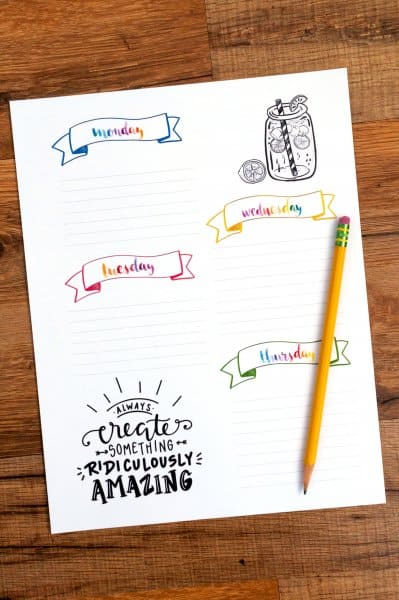 monday
tuesday
ALWAYS
create
SOMETHING
RIDICULOUSLY
AMAZING
wednesday
thursday